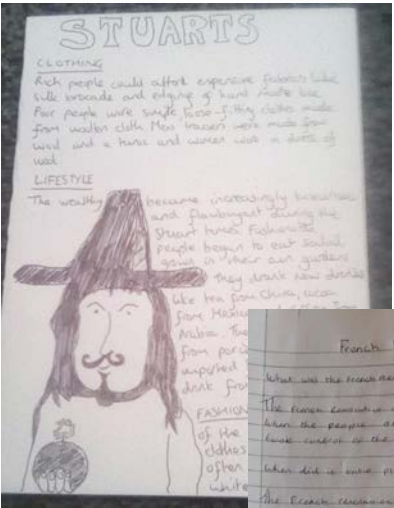 STUARTS
CLOTHING
Rich people could afford expensive fabrics like
silk brocade and edging of hand made lace.
Poor people wore simple loose-fitting clothes made
from woollen cloth Mens trousers were made from
wool and a and women wore a dress of
wool.
LIFESTYLE
The wealthy became increasingly
and flamboyant during the
Stuart times. Fashionable
people began to eat salad
grown in their own gardens
They drank new drinks
like tea from China, cocoa
from Mexico
Arabia. The
from
imported
drink from
FASHION
of the
clothes
often
white
French
What was the French
The French Revolution
when the people
took control of the
When did it take pl
The French revolution